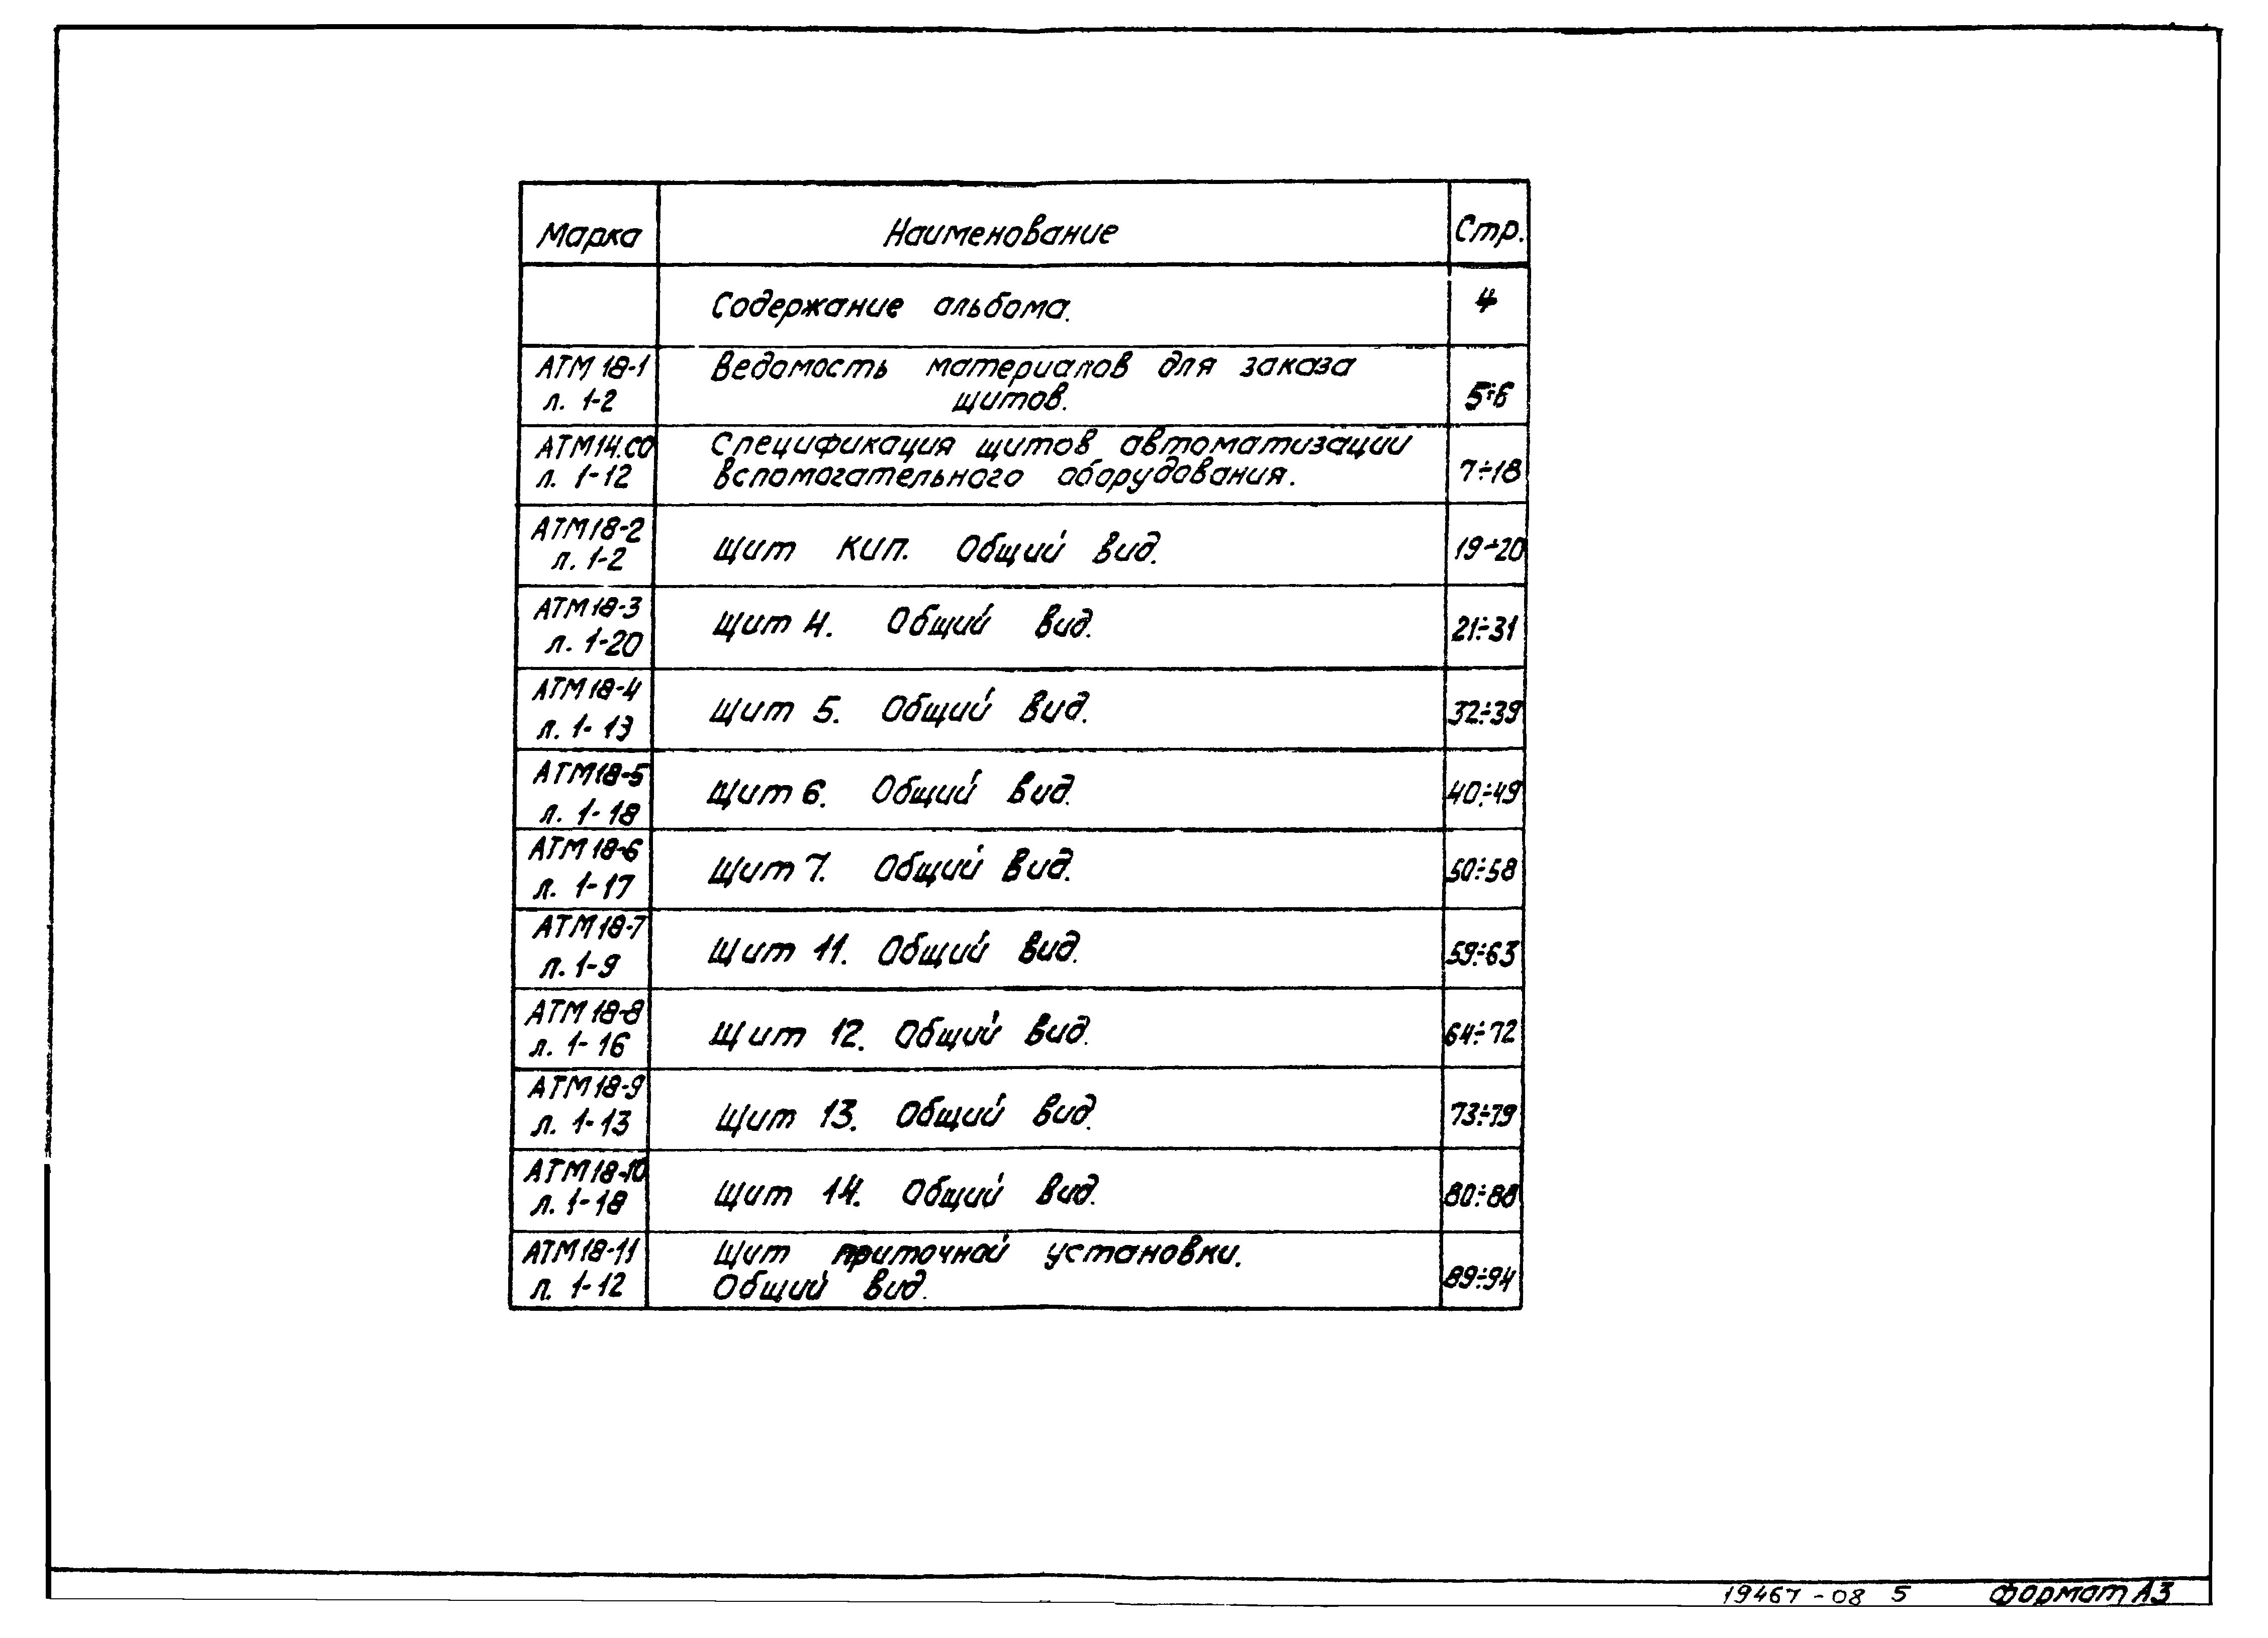 Марка Наименование Стр.
Содержание альбома. 4
АТМ 18-1 Ведомость материалов для заказа
л. 1-2 щитов. 5÷6
АТМ14.СО Спецификация щитов автоматизации
л. 1-12 вспомогательного оборудования. 7÷18
АТМ18-2
л. 1-2 Щит КИП. Общий вид. 19÷20
АТМ18-3
л. 1-20 Щит 4. Общий вид. 21÷31
АТМ18-4
л. 1-13 Щит 5. Общий вид. 32÷39
АТМ18-5
л. 1-18 Щит 6. Общий вид. 40÷49
АТМ18-6
л. 1-17 Щит 7. Общий вид. 50÷58
АТМ18-7
л. 1-9 Щит 11. Общий вид. 59÷63
АТМ18-8
л. 1-16 Щит 12. Общий вид. 64÷72
АТМ18-9
л. 1-13 Щит 13. Общий вид. 73÷79
АТМ18-10
л. 1-18 Щит 14. Общий вид. 80÷88
АТМ18-11 Щит приточной установки.
л. 1-12 Общий вид. 89÷94
19467-08 5 формат А3